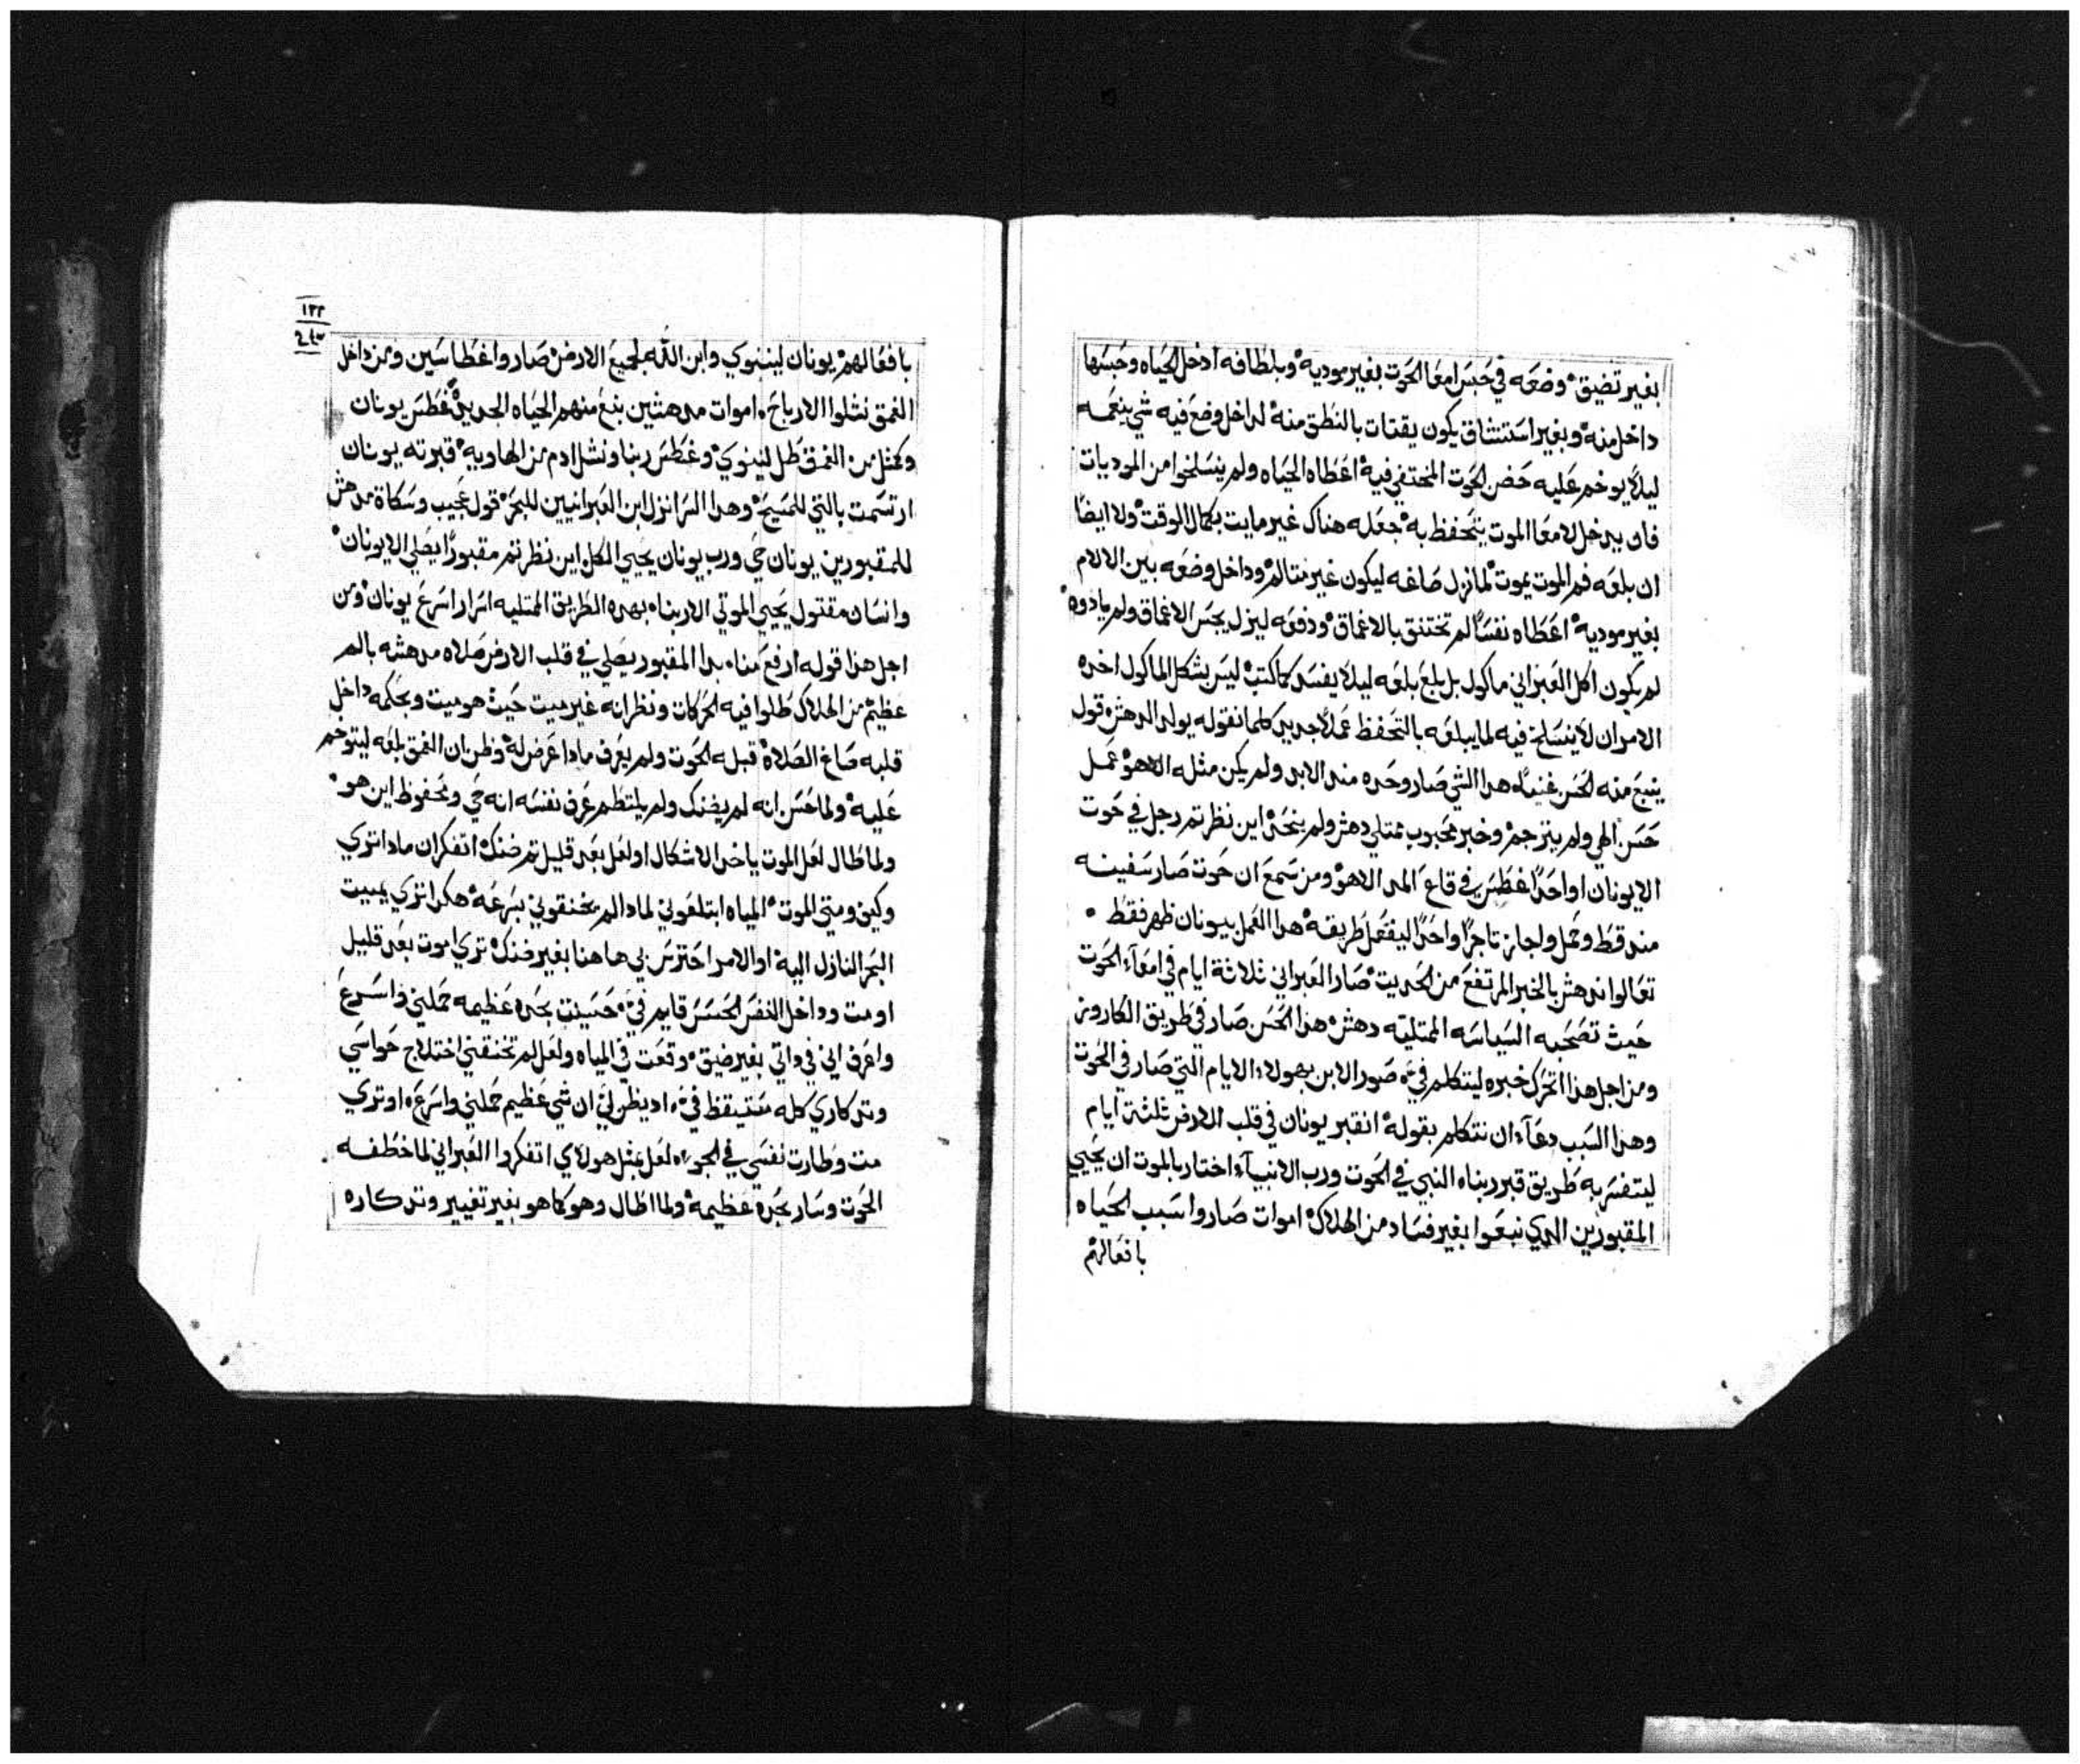 بغير تضيق وضعه في حبس امعا الحوت بغير موديه وبلطافه ادخل الحياه وحبسها
داخل منه وبغير استنشاق يكون يقتات بالنطق منه لداخل وضع فيه شي ينعمه
ليلا يوخم عليه حضن الحوت المختفي فيه اعطاه الحياه ولم ينسلخوا من الموديات
فان يدخل لامعا الموت يتحفظ به جعله هناك غير مايت بكمال الوقت ولا ايضا
ان بلعه فم الموت يموت لما نزل صاغه ليكون غير متالم وداخل وضعه بين الالام
بغير موديه اعطاه نفسا لم تختنق بالاغماق ودفعه لينزل يجس الاغماق ولم ياذوه
لم يكون اكل العبراني ماكول بل بلع بلعه ليلا يفسد كما كتب ليس بشكل الماكول اخده
الامر ان لا ينسلخ فيه لما يبلعه بالتحفظ عملا جديد كلما نقوله يولد الدهش قول
ينبع منه لحسن غنيا هدا الشي صار وحده مند الابد ولم يكن مثله الاهو عمل
حسن الهي ولم يترجم وخبر محبوب ممتلي دهش ولم ينحد اين نظرتم رجل في حوت
الا يونان او احدا غطس في قاع المد الاهو ومن سمع ان حوت صار سفينه
مند قط وحمل واجاز تاجرا واحدا ليفعل طريقه هدا العمل بيونان ظهر فقط
تعالوا ندهش بالخبر المرتفع من الحديت صار العبراني ثلاثة ايام في امعآء الحوت
حيث تصحبه السياسه الممتليه دهش هذا الحسن صار في طريق الكاروز
ومن اجل هذا اتحرك خبره ليتكلم في صور الابن بهولاء الايام التي صار في الحوت
وهدا السبب دعآء ان نتكلم بقوله انقبر يونان في قلب الارض ثلثة ايام
ليتفسر به طريق قبر ربناه النبي في الحوت ورب الانبيآء اختار بالموت ان يحيي
المقبورين الدي نبعوا بغير فساد من الهلاك اموات صاروا سبب الحياه
بافعالهم
١٢٢
٢٤٣
بافعالهم يونان لنينوي وابن الله لجميع الارض صاروا غطاسين ومن داخل
الغمق نشلوا الارباح اموات مدهشين بنع منهم الحياه الجديد غطس يونان
وكمثل من الغمق طل لنينوي وغطس ربنا ونشل ادم من الهاويه قبرته يونان
ارتسمت بالتي للمسيح وهدا السر انزل ابن العبرانيين للبحر قول عجيب وسكاة مدهش
للمقبورين يونان حي ورب يونان يحيي الكل اين نظرتم مقبورا يصلي الا يونان
وانسان مقتول يحيي الموتي الا ربناه بهده الطريق الممتليه اسرار اسرع يونان ومن
اجل هذا قوله ارفع مناه بدا المقبور يصلي في قلب الارض صلاه مدهشه بالم
عظيم من الهلاك طلوا فيه الحركات ونظر انه غير ميت حيث هو ميت وبحكمه داخل
قلبه صاغ الصلاة قبله الحوت ولم يعرف مادا عرض له وظن ان الغمق بلعه ليتوخم
عليه ولما حس انه لم يضنك ولم يلتطم عرف نفسه انه حي ومحفوظ اين هو
ولما طال لعل الموت ياخد الاشكال او لعل بعد قليل تم ضنك اتفكر ان مادا تري
وكيف ومتي الموت المياه ابتلعوني لمادا لم يخنقوني بسرعه هكدا تري يميت
البحر النازل اليه او الامر احترس بي هاهنا بغير ضنك تري اموت بعد قليل
او مت وداخل النفس الحسس قايم في حسيت بحده عظيمه حملني واسرع
واعرف اني في داتي بغير ضيق وقعت في المياه ولعل لم تخنقني اختلاج حواسي
وتدكاري كله ستيقظ في اد يظن لي ان شي عظيم حملني واسرع او تري
مت وطارت نفسي في الجو لعل بمثل هولاي اتفكروا العبراني لما خطفه
الحوت وسار بحده عظيمه ولما اطال وهو كما هو بغير تغيير وتدكاره